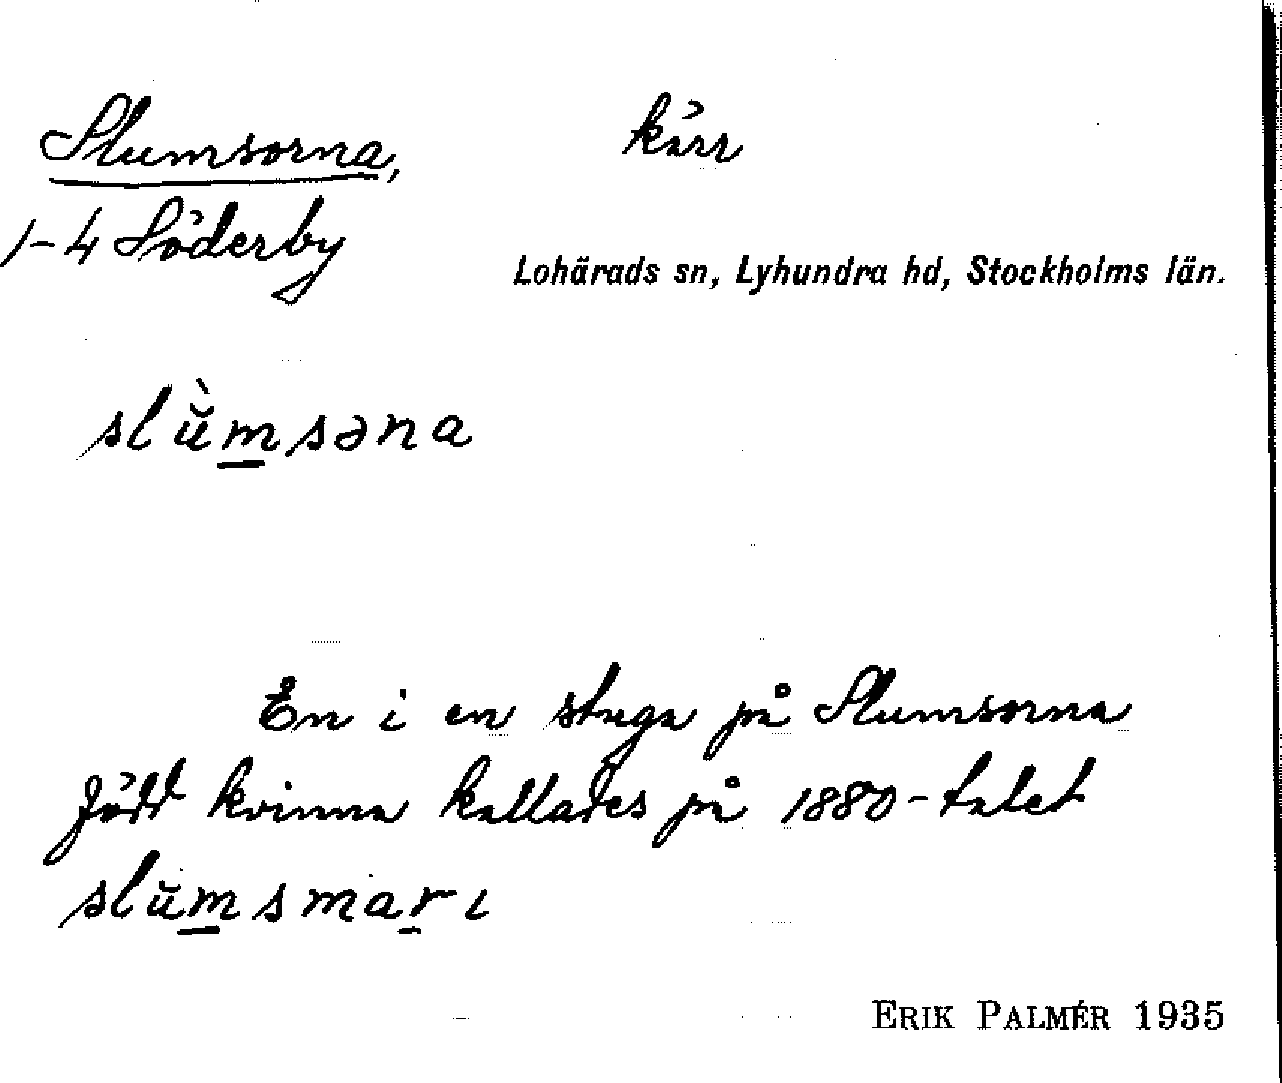 Slumsorna, kärr
1-4 Söderby
Lohärads sn, Lyhundra hd, Stockholms län.
slŭ̀m̲səna
En i en stuga på Slumsorna
född kvinna kallades på 1880-talet
slŭm̲smar̲ı
ERIK PALMÉR 1935